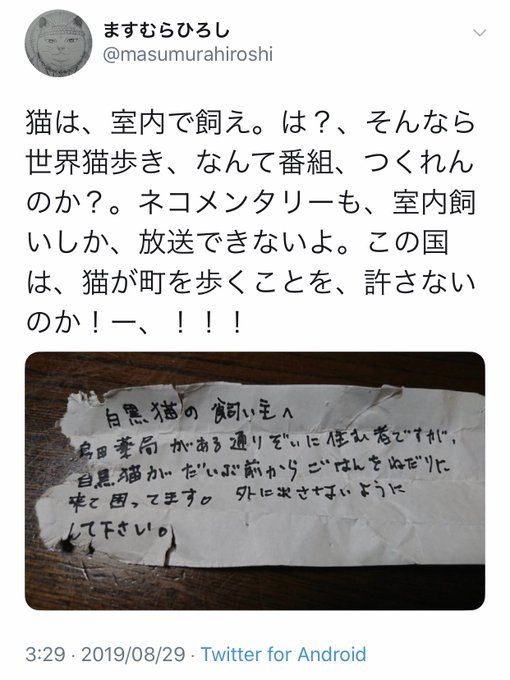 ますむらひろし
@masumurahiroshi
猫は、室内で飼え。は？、そんなら
世界猫歩き、なんて番組、つくれん
のか？。ネコメンタリーも、室内飼
いしか、放送できないよ。この国
は、猫が町を歩くことを、許さない
のか！ー、！！！
白黒猫の 飼い主へ
薬局 がある通りぞいに 住む者ですが、
白黒猫が だいぶ前から ごはんを ねだりに
来て 困ってます。 外に出させないように
して下さい。
3:29 · 2019/08/29 · Twitter for Android